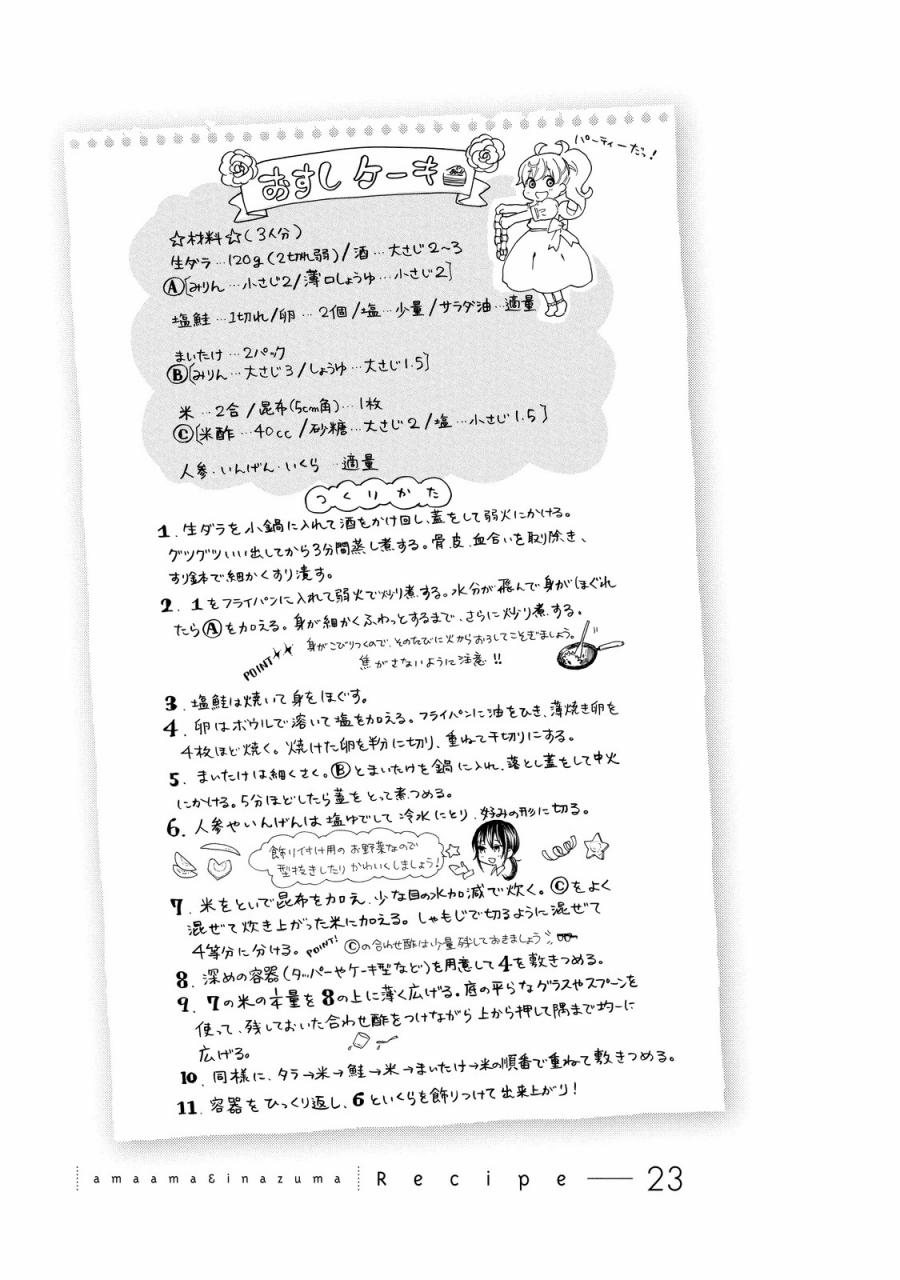 おすしケーキ
パーティーだっ!
☆材料☆(3人分)
生ダラ…120g(2切れ弱)/酒…大さじ2〜3
Ⓐ[みりん…小さじ2/薄口しょうゆ…小さじ2]
塩鮭…1切れ/卵…2個/塩…少量/サラダ油…適量
まいたけ…2パック
Ⓑ[みりん…大さじ3/しょうゆ…大さじ1.5]
米…2合/昆布(5cm角)…1枚
Ⓒ[米酢…40cc/砂糖…大さじ2/塩…小さじ1.5]
人参・いんげん・いくら…適量
つくりかた
1.生ダラを小鍋に入れて酒をかけ回し、蓋をして弱火にかける。
グツグツいい出してから3分間蒸し煮する。骨、皮、血合いを取り除き、
すり鉢で細かくすり潰す。
2.1をフライパンに入れて弱火で炒り煮する。水分が飛んで身がほぐれ
たらⒶを加える。身が細かくふわっとするまで、さらに炒り煮する。
POINT
身がこびりつくので、そのたびに火からおろしてこそぎましょう。
焦がさないように注意!!
3.塩鮭は焼いて身をほぐす。
4.卵はボウルで溶いて塩を加える。フライパンに油をひき、薄焼き卵を
4枚ほど焼く。焼けた卵を半分に切り、重ねて千切りにする。
5.まいたけは細くさく。Ⓑとまいたけを鍋に入れ、落とし蓋をして中火
にかける。5分ほどしたら蓋をとって煮つめる。
6.人参やいんげんは塩ゆでして冷水にとり、好みの形に切る。
飾り付け用のお野菜なので
型抜きしたりかわいくしましょう!
7.米をといで昆布を加え、少な目の水加減で炊く。Ⓒをよく
混ぜて炊き上がった米に加える。しゃもじで切るように混ぜて
4等分に分ける。POINT!Ⓒの合わせ酢は少量残しておきましょう
8.深めの容器(タッパーやケーキ型など)を用意して4を敷きつめる。
9.7の米の1/4量を8の上に薄く広げる。底の平らなグラスやスプーンを
使って、残しておいた合わせ酢をつけながら上から押して隅まで均一に
広げる。
10.同様に、タラ→米→鮭→米→まいたけ→米の順番で重ねて敷きつめる。
11.容器をひっくり返し、6といくらを飾りつけて出来上がり!
amaama&inazuma Recipe — 23